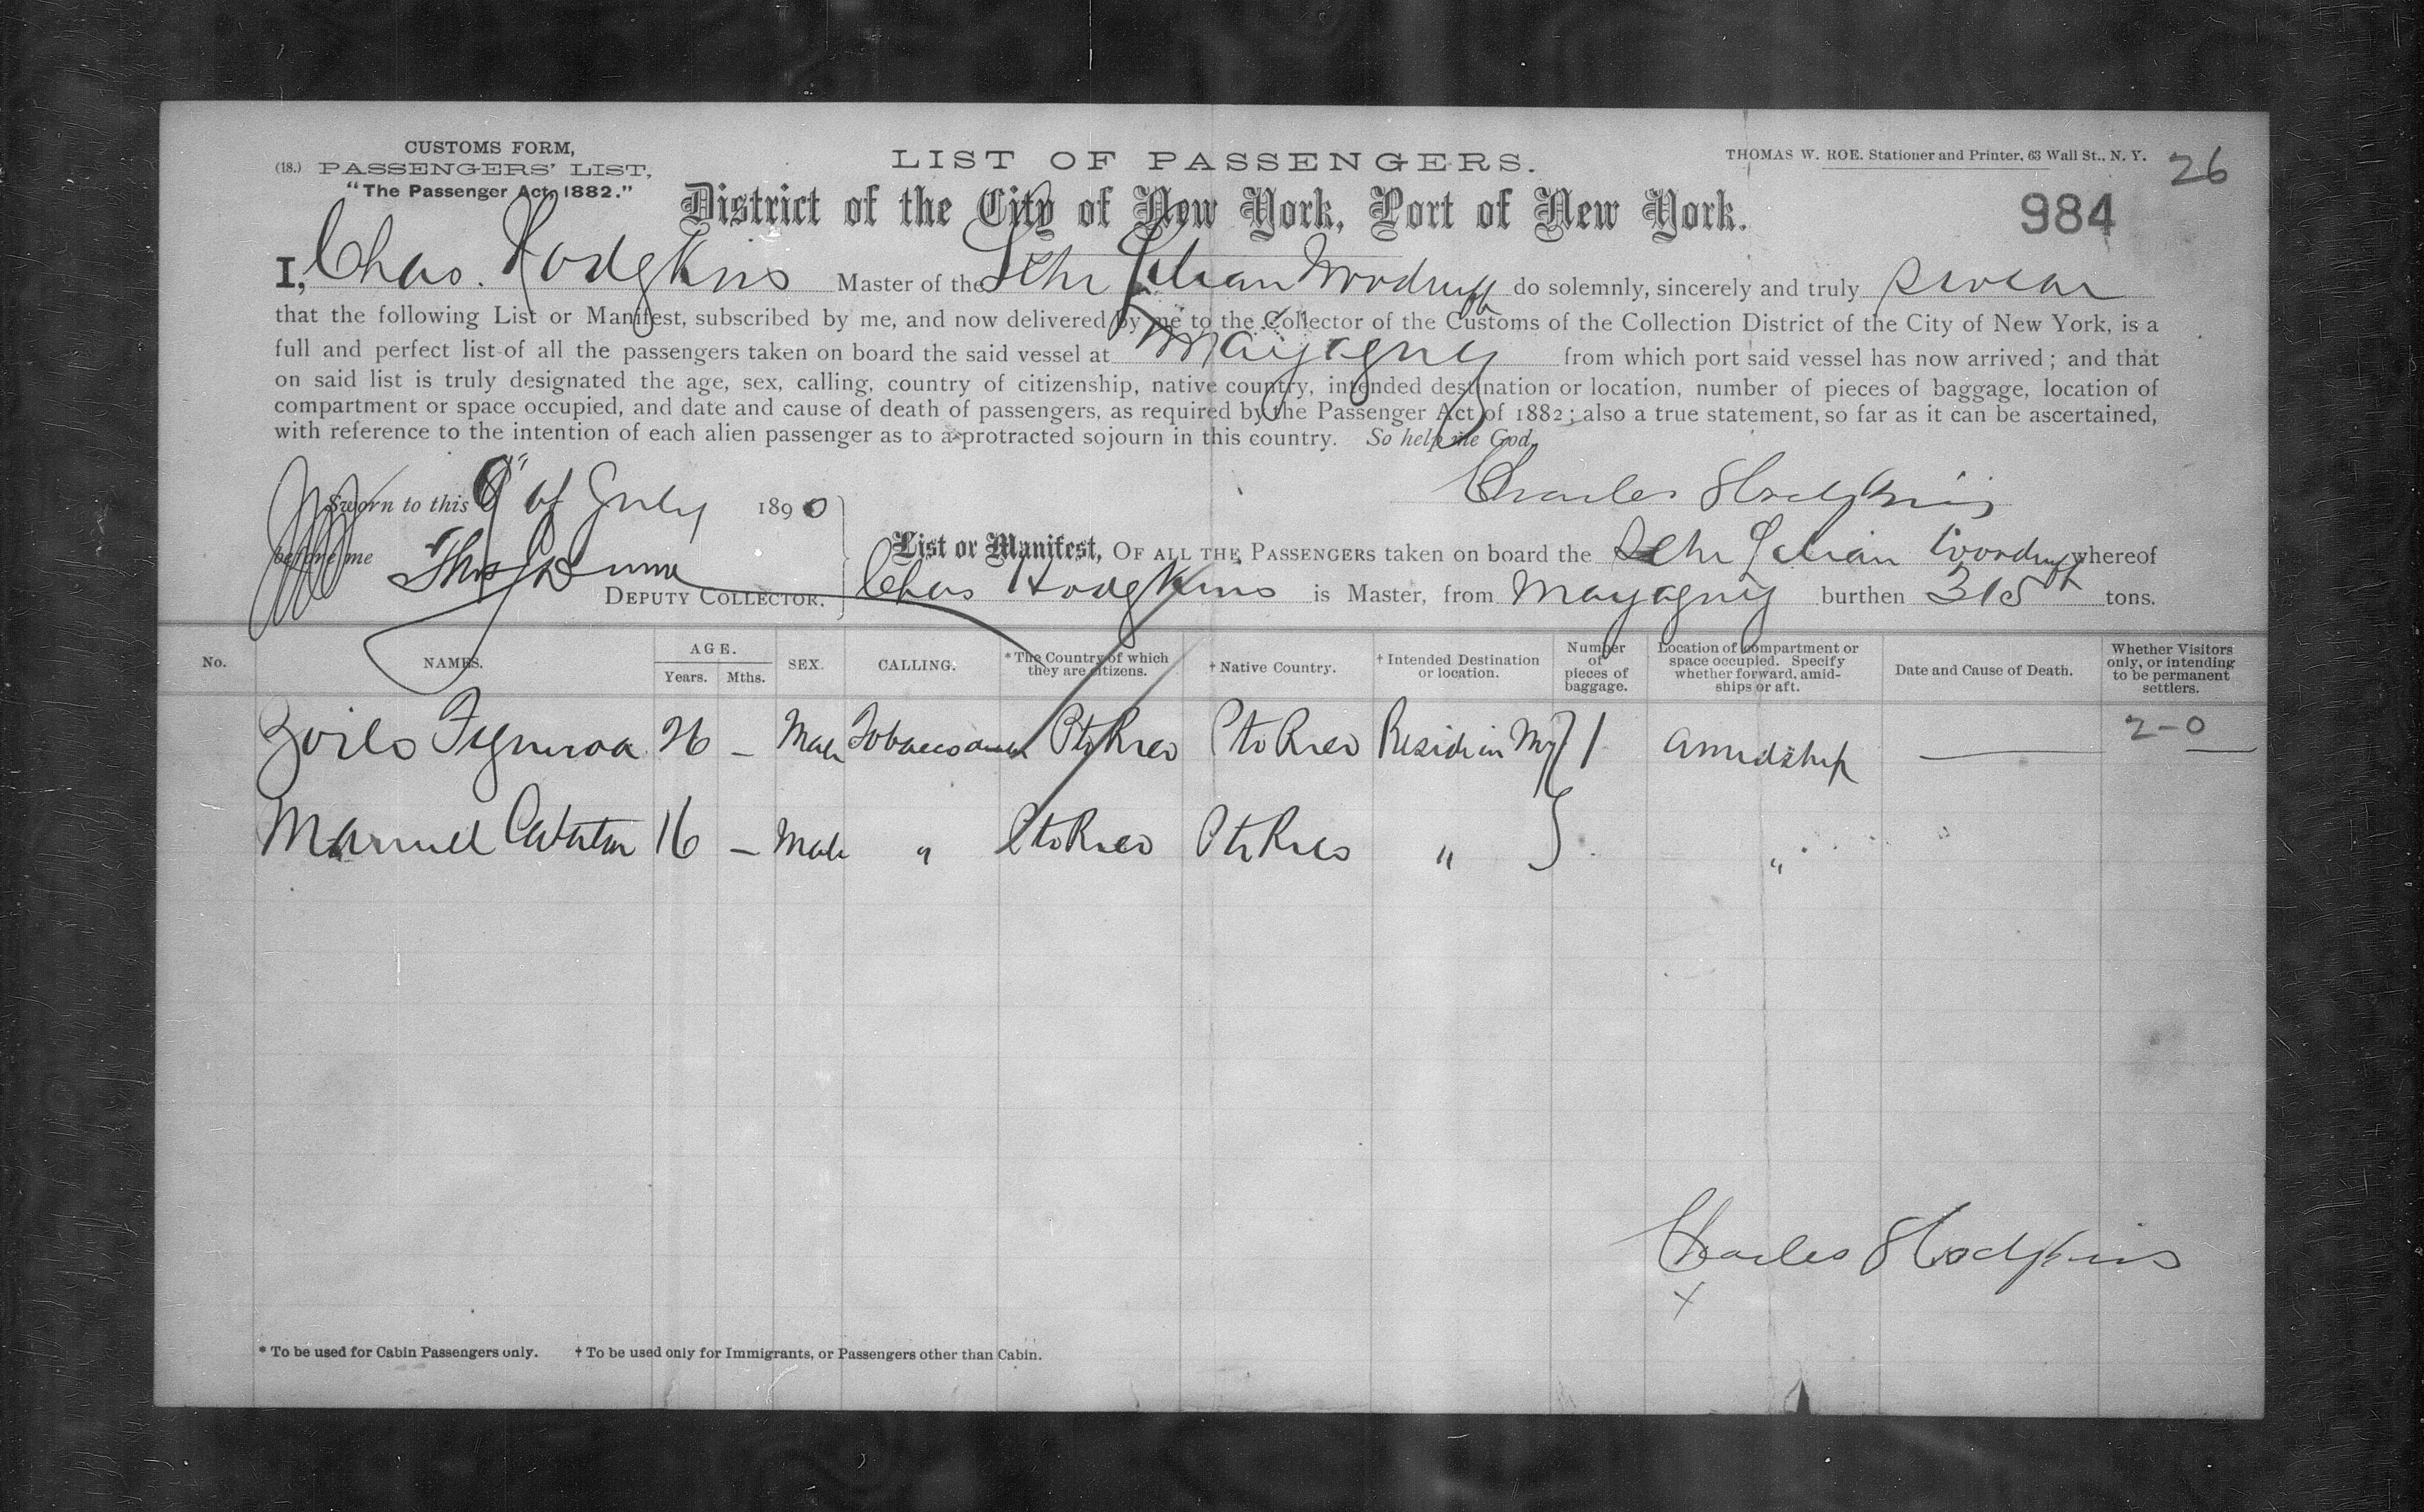 CUSTOMS FORM,
(18.) PASSENGERS' LIST,
"The Passenger Act, 1882."
LIST OF PASSENGERS.
THOMAS W. ROE. Stationer and Printer, 63 Wall St., N. Y.
26
District of the City of New York, Port of New York.
984
I, Chas. Hodgkins Master of the Schr Lilian Woodruff do solemnly, sincerely and truly swear
that the following List or Manifest, subscribed by me, and now delivered by me to the Collector of the Customs of the Collection District of the City of New York, is a
full and perfect list of all the passengers taken on board the said vessel at Mayaguez from which port said vessel has now arrived; and that
on said list is truly designated the age, sex, calling, country of citizenship, native country, intended destination or location, number of pieces of baggage, location of
compartment or space occupied, and date and cause of death of passengers, as required by the Passenger Act of 1882; also a true statement, so far as it can be ascertained,
with reference to the intention of each alien passenger as to a protracted sojourn in this country. So help me God.
Charles Hodgkins
Sworn to this of July 1890
before me Thos Dunn
DEPUTY COLLECTOR.
List or Manifest, OF ALL THE PASSENGERS taken on board the Schr Lilian Woodruff whereof
Chas Hodgkins is Master, from Mayaguez burthen 315 tons.
No. NAMES. AGE. Years. Mths. SEX. CALLING. *The Country of which they are citizens. † Native Country. † Intended Destination or location. Number of pieces of baggage. Location of compartment or space occupied. Specify whether forward, amidships or aft. Date and Cause of Death. Whether Visitors only, or intending to be permanent settlers.
Zoilo Figueroa 26 — Male Pto Rico Pto Rico Reside in NY 1 amidship — 2-0
Manuel 16 — Male " Pto Rico Pto Rico " "
Charles Hodgkins
x
* To be used for Cabin Passengers only. † To be used only for Immigrants, or Passengers other than Cabin.